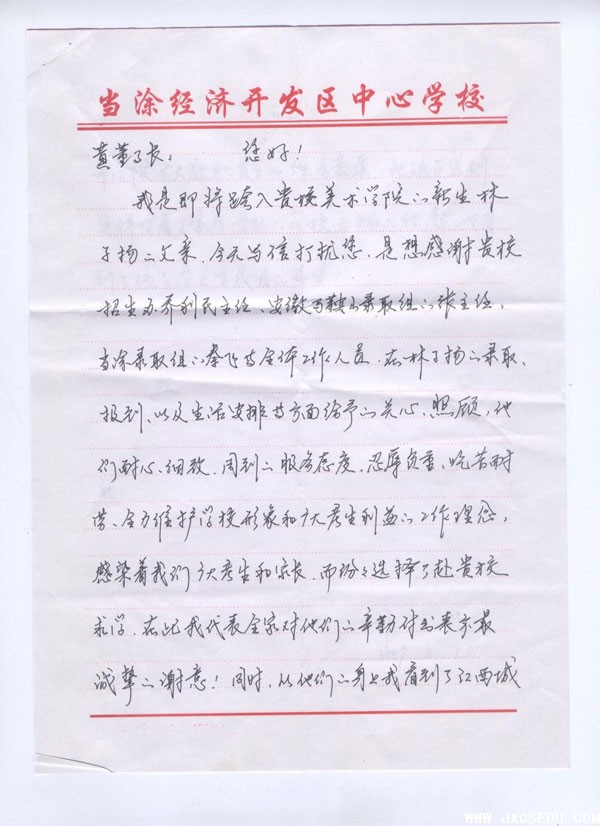 当涂经济开发区中心学校
黄董事长：　您好！
我是即将跨入贵校美术学院的新生林
子扬的父亲，今天写信打扰您，是想感谢贵校
招生办乔利民主任、安徽马鞍山录取组的张主任、
当涂录取组的秦飞等全体工作人员，在林子扬的录取、
报到、以及生活安排等方面给予的关心、照顾，他
们耐心、细致、周到的服务态度，忍辱负重、吃苦耐
劳、全力维护学校形象和广大考生利益的工作理念，
感染着我们广大考生和家长，而纷纷选择了赴贵校
求学。在此我代表全家对他们的辛勤付出表示最
诚挚的谢意！同时，从他们的身上我看到了江西城
WWW.JXCSEDU.COM